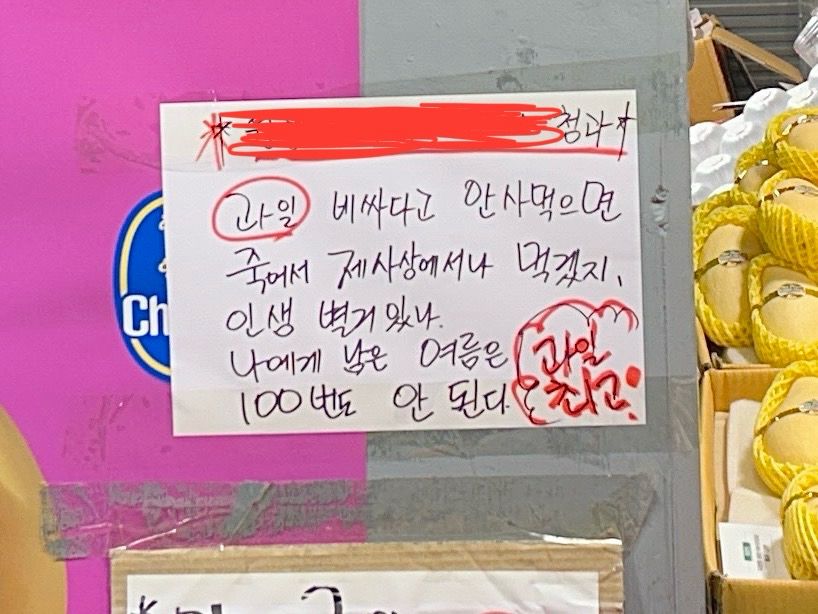 청과*
과일 비싸다고 안사먹으면
죽어서 제사상에서나 먹겠지,
인생 별거 있나.
나에게 남은 여름은
100번도 안 된다
과일
최고!
Ch